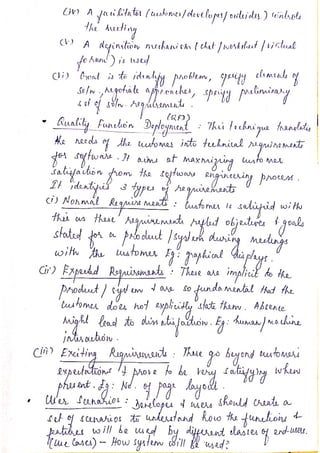 (iv) A facilitator (customer/developer/outsider) controls
the meeting
(v) A definition mechanism (chat/worksheet/virtual
forum) is used
(vi) Goal is to identify problem, specify elements of
soln, negotiate approaches, specify preliminary
set of soln. requirements.
• Quality Function Deployment (QFD) : This technique translates
the needs of the customer into technical requirements
for software. It aims at maximizing customer
satisfaction from the software engineering process.
It identifies 3 types of requirements
(i) Normal Requirements : Customer is satisfied with
this as these requirements reflect objectives & goals
stated for a product/system during meetings
with the customer Eg: graphical displays.
(ii) Expected Requirements : These are implicit to the
product/system & are so fundamental that the
customer does not explicitly state them. Absence
might lead to dissatisfaction. Eg: human/machine
interaction.
(iii) Exciting Requirements : These go beyond customers
expectations & prove to be very satisfying when
present. Eg: No. of page layout.
• User Scenarios : Developers & users should create a
set of scenarios to understand how the functions &
features will be used by different classes of end-users.
(Use Cases) - How system will be used?